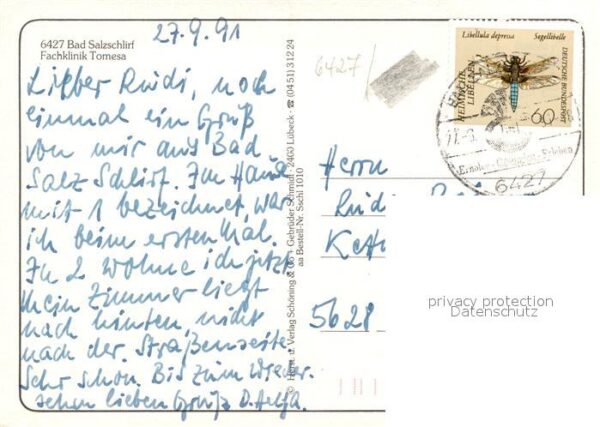 27.9.91
6427 Bad Salzschlirf
Fachklinik Tomesa
Lieber Rudi, noch
einmal ein Gruß
von mir aus Bad
Salz Schlirf. Im Haus
mit 1 bezeichnet, war
ich beim ersten Mal.
In 2 wohne ich jetzt
Mein Zimmer liegt
nach hinten nicht
nach der Straßenseite
Sehr schön. Bis zum Wieder-
sehen lieben Gruß D. Helga.
© Horst u. Verlag Schöning & Co · Gebrüder Schmidt · 2400 Lübeck · ☎ (0451) 31224
aa Bestell-Nr. Sschl 1010
6427
Libellula depressa Segellibelle
HEIMISCHE LIBELLEN
DEUTSCHE BUNDESPOST
60
6427
Herrn
Rudi
5628
privacy protection
Datenschutz